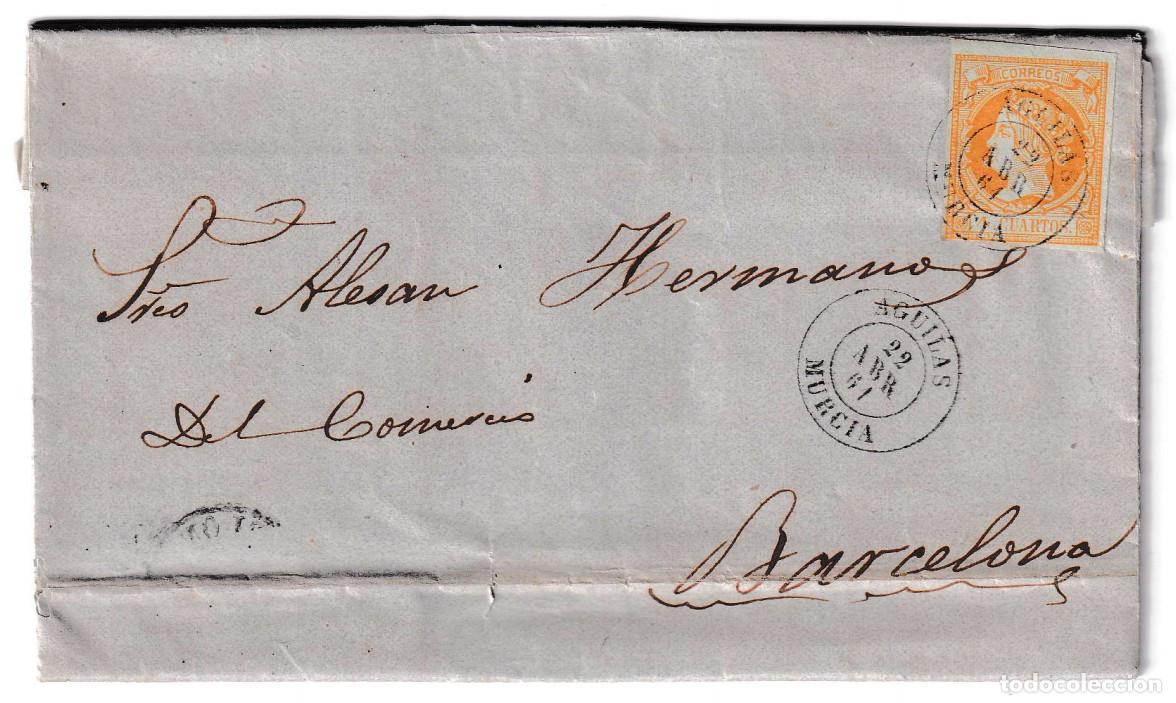 CORREOS
AGUILAS
22
ABR
61
MURCIA
CUARTOS.
Sres Alesan Hermanos
AGUILAS
22
ABR
61
MURCIA
Del Comercio
Barcelona
todocoleccion